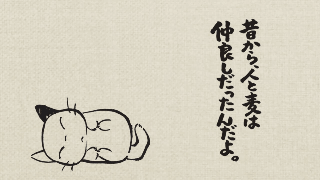 昔から、人と麦は
仲良しだったんだよ。